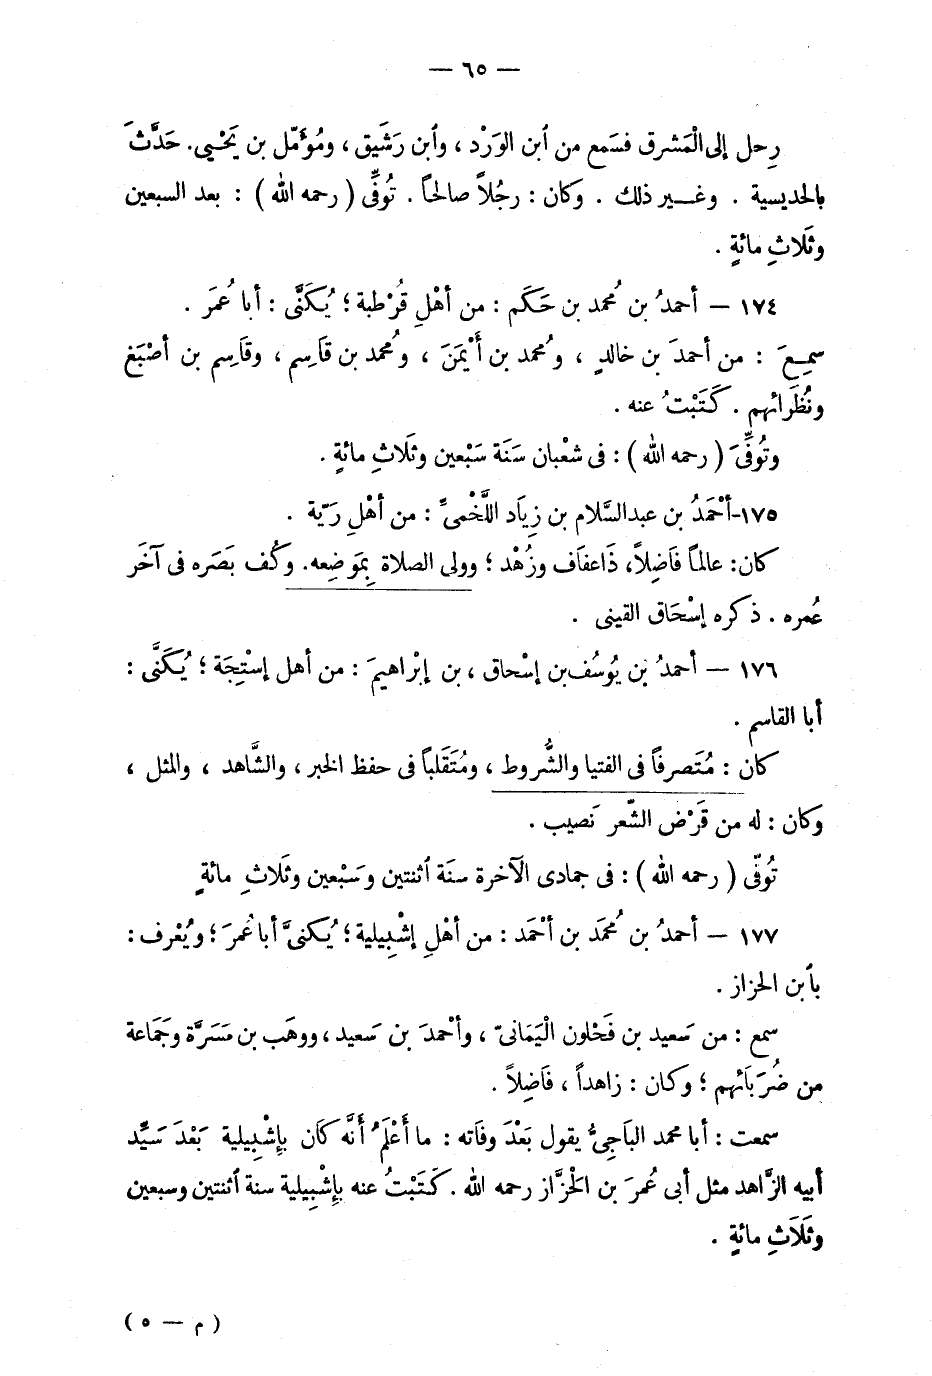 — ٦٥ —
رحل إلى الْمَشرق فسَمع من ٱبن الوَرْد ، وٱبن رَشَيق ، ومُؤمّل بن يَحْيى. حَدَّثَ
بالحديسية . وغـير ذلك . وكان : رجُلاً صالحاً . تُوفِّى ( رحمه الله ) : بعد السبعين
وثَلاثِ مائةٍ .
١٧٤ — أحمدُ بن مُحمد بن حَكَم : من أهْلِ قُرْطبة ؛ يُكَنَّى : أبا عُمَرَ .
سمِـعَ : من أحمدَ بن خالدٍ ، ومُحمد بن أَيْمَنَ ، ومُحمد بن قاَسِم ، وقاَسِم بن أصْبَغ
ونُظَرائهم . كَتَبْتُ عنه .
وتُوفِّىَ ( رحمه الله ) : فى شعْبان سَنَة سَبْعين وثَلاثِ مائةٍ .
١٧٥-أحْمَدُ بن عبدالسَّلام بن زِياَد اللَّخْمىِّ : من أهْلِ رَيّة .
كان: عالماً فاَضِلاً، ذَاعفاَف وزُهْد ؛ وولى الصلاة بِمَوضِعه. وكُف بصَره فى آخَر
عُمره . ذكره إسْحَاق القينى .
١٧٦ — أحمدُ بن يُوسُف بن إسْحاق ، بن إبْراهيمَ : من أهل إستِجَة ؛ يُكَنَّى :
أبا القاسم .
كان : مُتَصرفاً فى الفتيا والشُّروط ، ومُتَقَلباً فى حفظ الخبر ، والشَّاهد ، والمثل ،
وكان : له من قَرْض الشّعر نَصيب .
تُوفّى ( رحمه الله ) : فى جمادى الآخرة سنَة ٱثنتين وسَبْعين وثَلاثِ مائةٍ
١٧٧ — أحمدُ بن مُحمَد بن أحْمَد : من أهْلِ إشْبِيلية ؛ يُكنىَّ أباعُمرَ ؛ ويُعْرف :
بٱبن الخزاز .
سمع : من سَعيد بن فَحْلون الْيَمَانىّ ، وأحْمدَ بن سَعيد ، ووهَب بن مَسَرَّة وجَمَاعة
من ضُرَبَائهم ؛ وكان : زاهداً ، فاَضِلاً .
سمعت : أبا محمد البَاجِىُّ يقول بَعْدَ وفَاته : ما أَعْلَمُ أَنَّه كَان بإِشْبِيلية بَعْدَ سَيِّد
أبيه الزَّاهد مثل أبى عُمرَ بن الْخزَّاز رحمه الله . كَتَبْتُ عنه بإِشْبِيلية سنة ٱثنتين وسبعين
وثَلَاثِ مائةٍ .
( م — ٥ )